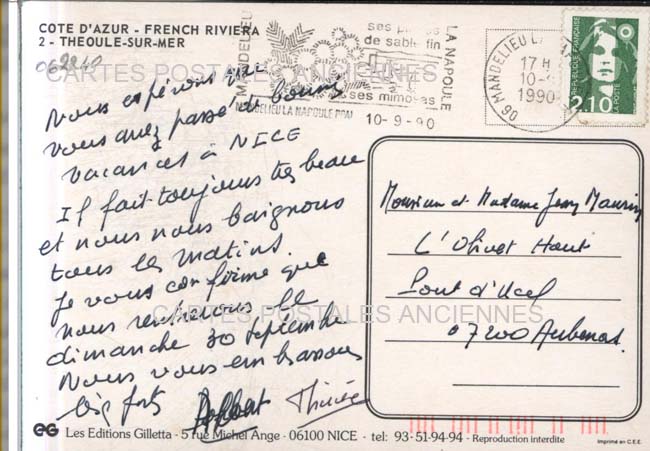 COTE D'AZUR - FRENCH RIVIERA
2 - THEOULE-SUR-MER
CARTES POSTALES ANCIENNES
Nous espérons que
vous avez passé de bonnes
vacances à NICE
Il fait toujours très beau
et nous nous baignons
tous les matins.
Je vous confirme que
nous rentrerons le
dimanche 30 septembre
Nous vous embrassons
très fort
Thérèse
MANDELIEU
de sable fin
ses mimosas
LA NAPOULE
MANDELIEU LA NAPOULE PPAL
10-9-90
06 MANDELIEU
17 H
10-9
1990
REPUBLIQUE FRANCAISE
LA POSTE
2,10
Monsieur et Madame Jean Maurin
L'Olivet Haut
Pont d'Ucel
07200 Aubenas
CARTES POSTALES ANCIENNES
EG Les Editions Gilletta - 5 rue Michel Ange - 06100 NICE - tel: 93-51-94-94 - Reproduction interdite
Imprimé en C.E.E.